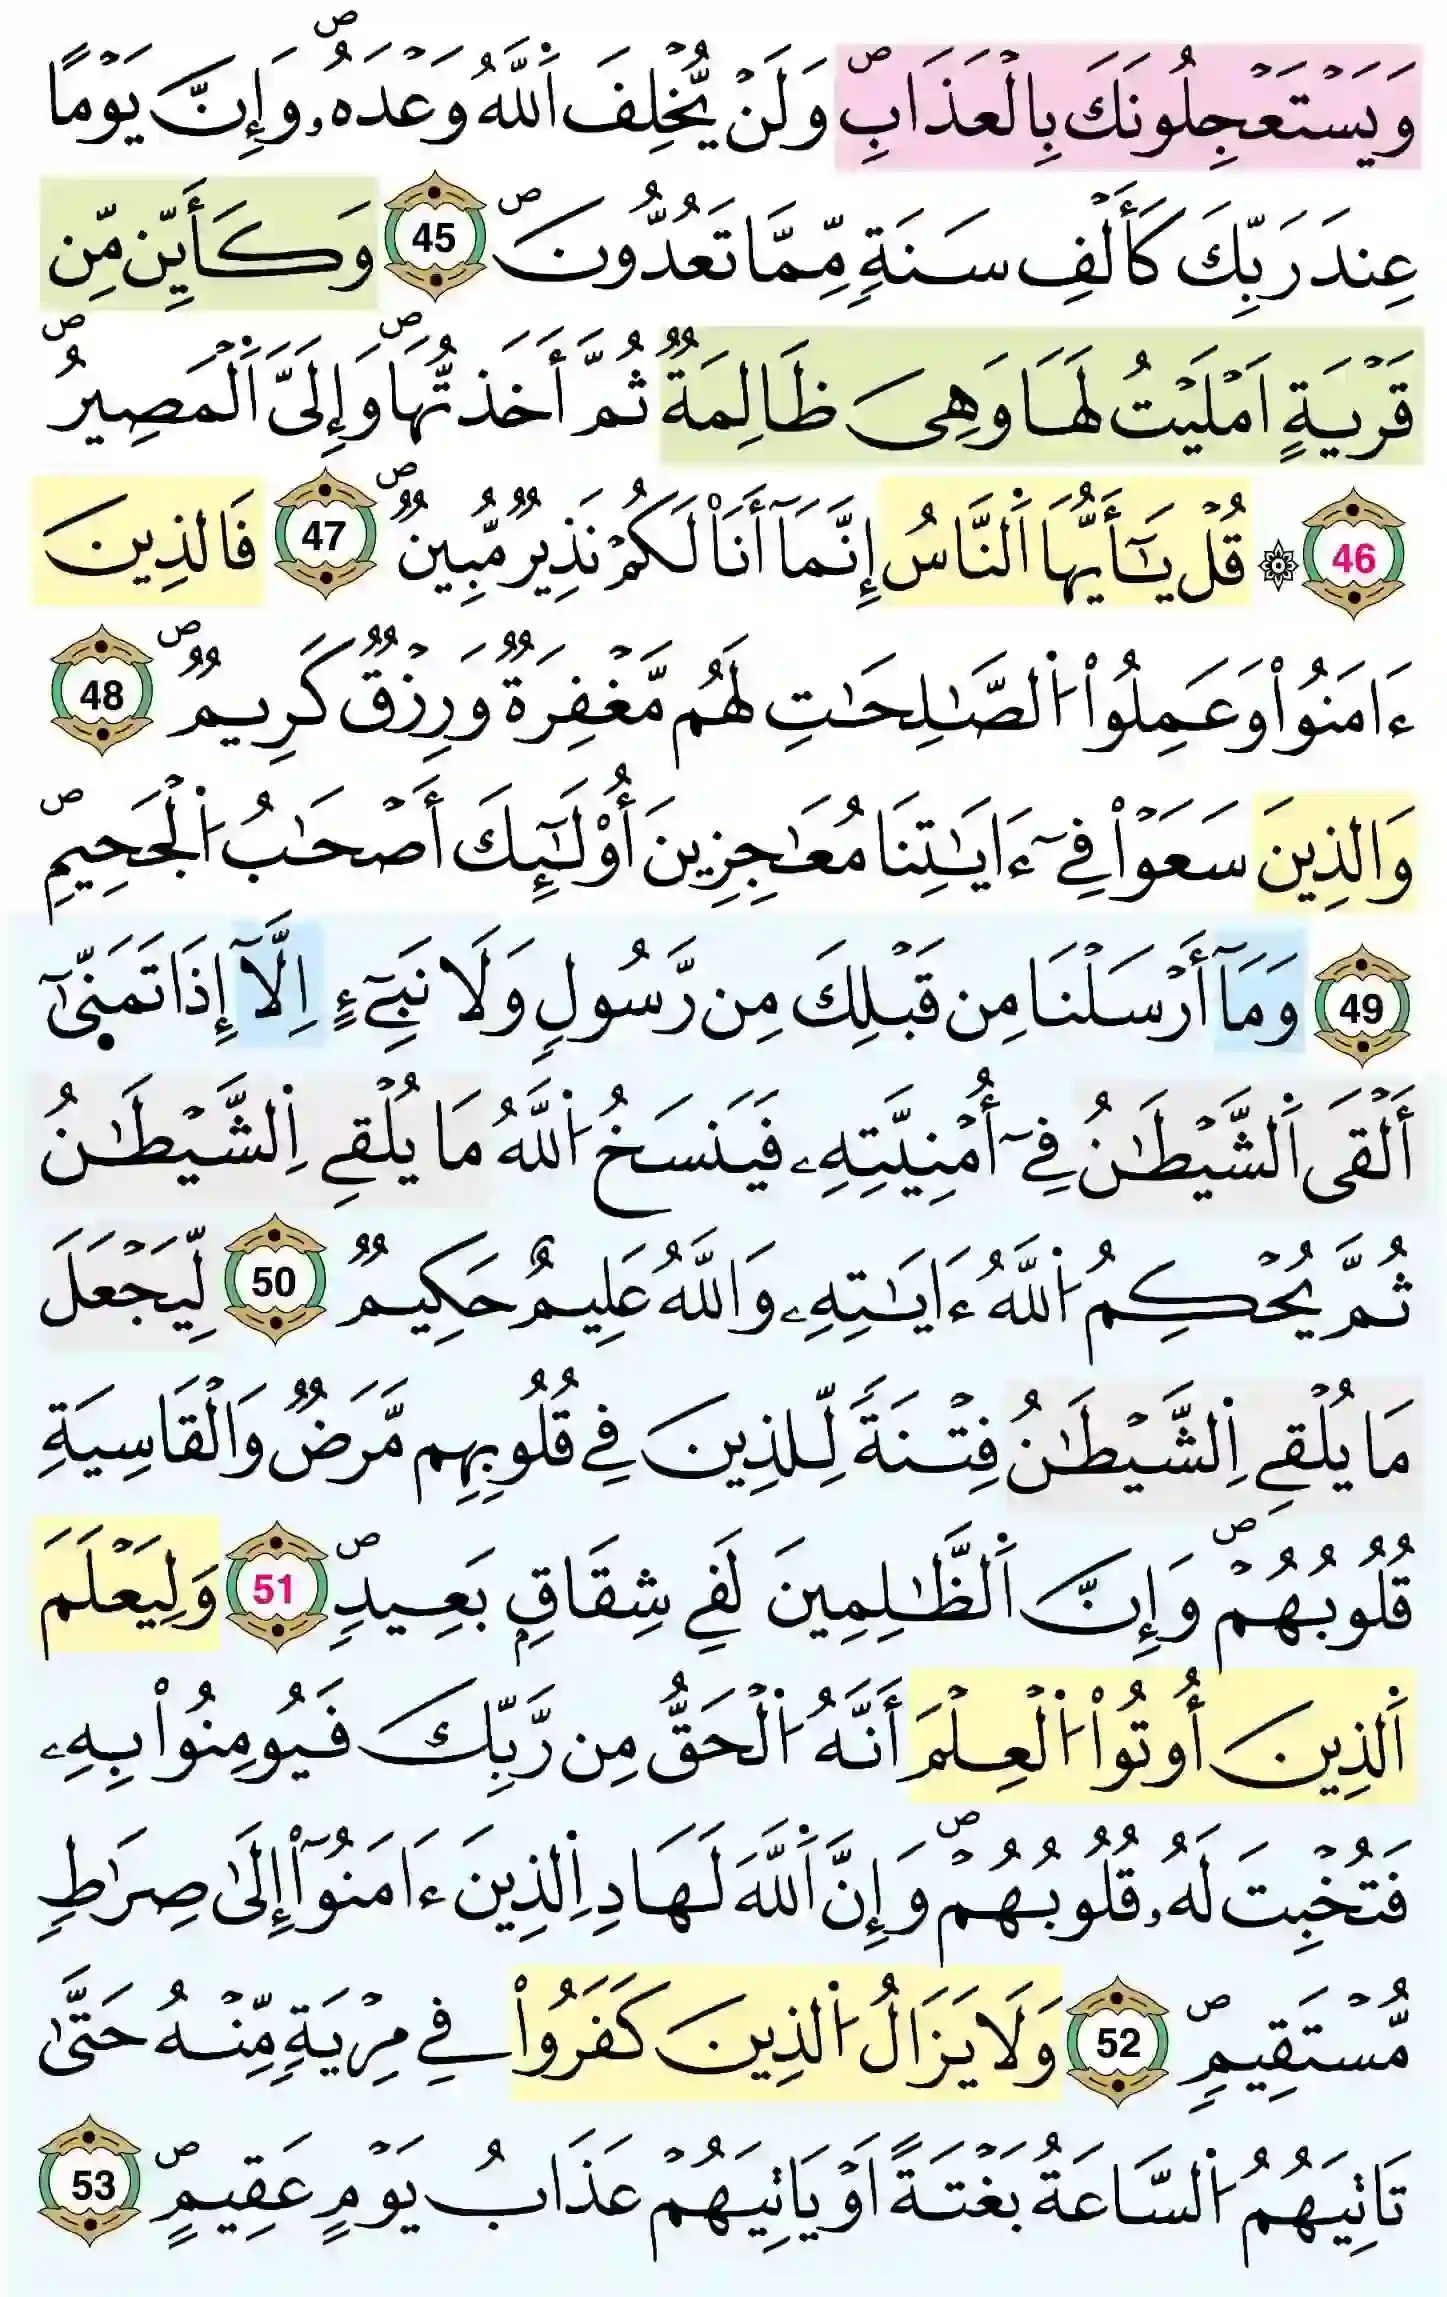 وَيَسْتَعْجِلُونَكَ بِالْعَذَابِۖ وَلَنْ يُّخْلِفَ اَ۬للَّهُ وَعْدَهُۥۖ وَإِنَّ يَوْماً
عِندَ رَبِّكَ كَأَلْفِ سَنَةٖ مِّمَّا تَعُدُّونَۖ 45 وَكَأَيِّن مِّن
قَرْيَةٍ اَمْلَيْتُ لَهَا وَهِيَ ظَالِمَةٞ ثُمَّ أَخَذتُّهَاۖ وَإِلَيَّ اَ۬لْمَصِيرُۖ
46 ۞ قُلْ يَٰٓأَيُّهَا اَ۬لنَّاسُ إِنَّمَآ أَنَا۠ لَكُمْ نَذِيرٞ مُّبِينٞۖ 47 فَالذِينَ
ءَامَنُواْ وَعَمِلُواْ اُ۬لصَّٰلِحَٰتِ لَهُم مَّغْفِرَةٞ وَرِزْقٞ كَرِيمٞۖ 48
وَالذِينَ سَعَوْاْ فِےٓ ءَايَٰتِنَا مُعَٰجِزِينَ أُوْلَٰٓئِكَ أَصْحَٰبُ اُ۬لْجَحِيمِۖ
49 وَمَآ أَرْسَلْنَا مِن قَبْلِكَ مِن رَّسُولٖ وَلَا نَبِےٓءٍ اِلَّآ إِذَا تَمَنّ۪ىٰٓ
أَلْقَى اَ۬لشَّيْطَٰنُ فِےٓ أُمْنِيَّتِهِۦ فَيَنسَخُ اُ۬للَّهُ مَا يُلْقِے اِ۬لشَّيْطَٰنُ
ثُمَّ يُحْكِمُ اُ۬للَّهُ ءَايَٰتِهِۦ وَاللَّهُ عَلِيمٌ حَكِيمٞ 50 لِّيَجْعَلَ
مَا يُلْقِے اِ۬لشَّيْطَٰنُ فِتْنَةٗ لِّلذِينَ فِے قُلُوبِهِم مَّرَضٞ وَالْقَاسِيَةِ
قُلُوبُهُمْۖ وَإِنَّ اَ۬لظَّٰلِمِينَ لَفِے شِقَاقِۢ بَعِيدٖۖ 51 وَلِيَعْلَمَ
اَ۬لذِينَ أُوتُواْ اُ۬لْعِلْمَ أَنَّهُ اُ۬لْحَقُّ مِن رَّبِّكَ فَيُومِنُواْ بِهِۦ
فَتُخْبِتَ لَهُۥ قُلُوبُهُمْۖ وَإِنَّ اَ۬للَّهَ لَهَادِ اِ۬لذِينَ ءَامَنُوٓاْ إِلَىٰ صِرَٰطٖ
مُّسْتَقِيمٖۖ 52 وَلَا يَزَالُ اُ۬لذِينَ كَفَرُواْ فِے مِرْيَةٖ مِّنْهُ حَتَّىٰ
تَاتِيَهُمُ اُ۬لسَّاعَةُ بَغْتَةً اَوْ يَاتِيَهُمْ عَذَابُ يَوْمٍ عَقِيمٍۖ 53